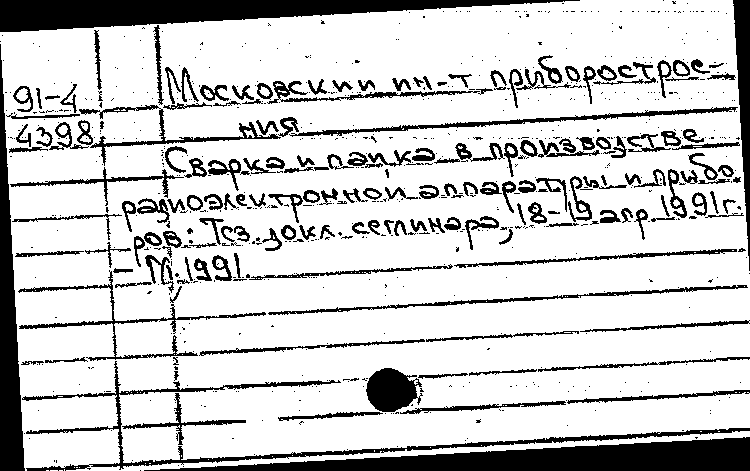 91-4
4398
Московский ин-т приборострое-
ния
Сварка и пайка в производстве
радиоэлектронной аппаратуры и прибо
ров: Тез. докл. семинара, 18-19 апр. 1991 г.
– М. 1991.